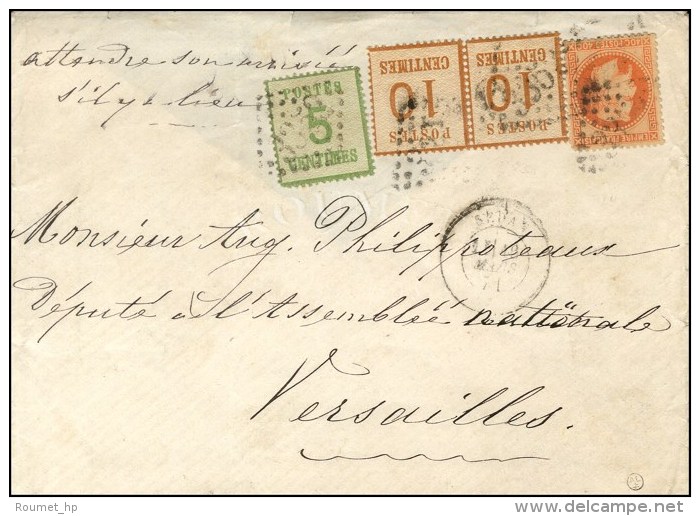 attendre son arrivée
s'il y a lieu
POSTES
5
CENTIMES
POSTES
10
CENTIMES
POSTES
10
CENTIMES
SEDAN
MARS
71
Monsieur Aug. Philippoteaux
Député à l'Assemblée nationale
Versailles.
Roumet_hp
©delcampe.net